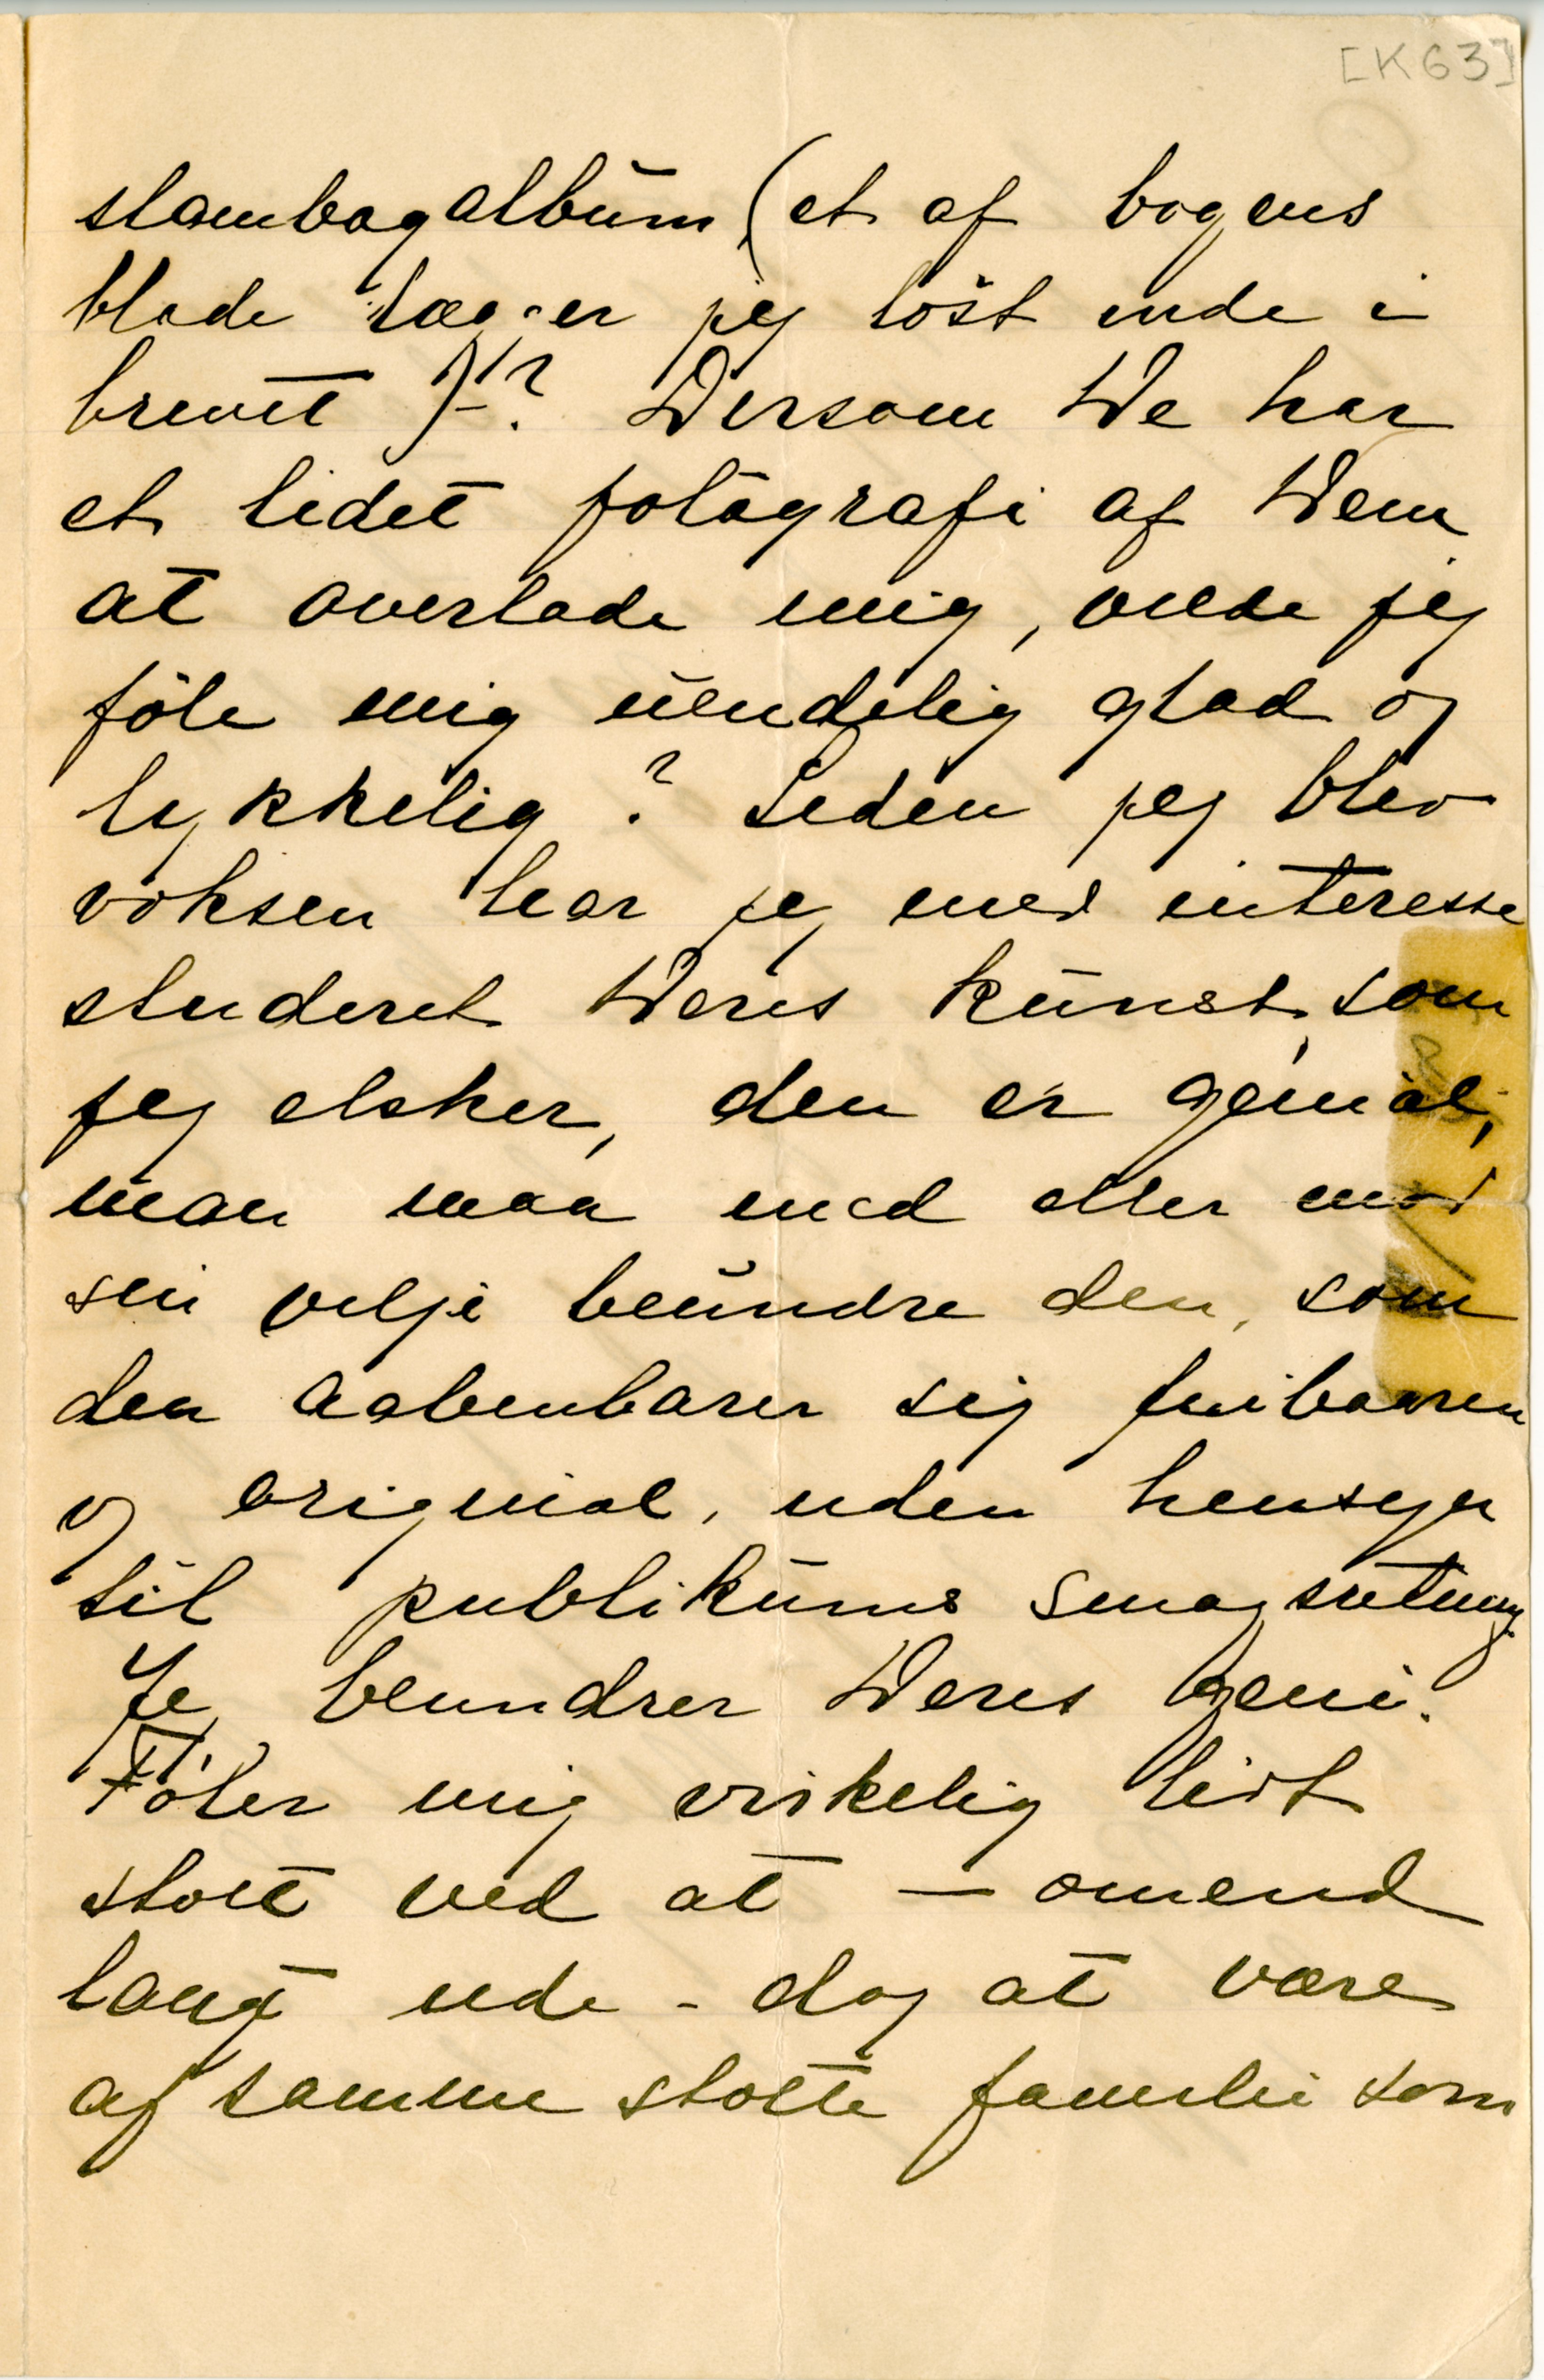 [K63]
stambogalbum, (et af bogens
blade lægger jeg löst inde i
brevet )-? Dersom De har
et lidet fotografi af Dem
at overlade mig, vilde jeg
föle mig uendelig glad og
lykkelig? Siden jeg blev
voksen har jeg med interesse
studeret Deres kunst, som
jeg elsker, den er genial,
man maa med eller mod
sin vilje beundre den, som
den aabenbarer sig fribaaren
og original, uden hensyn
til publikums smagsretning.
Jeg beundrer Deres geni.
Föler mig virkelig lidt
stolt ved at — omend
langt ude - dog at være
af samme stolte familie som